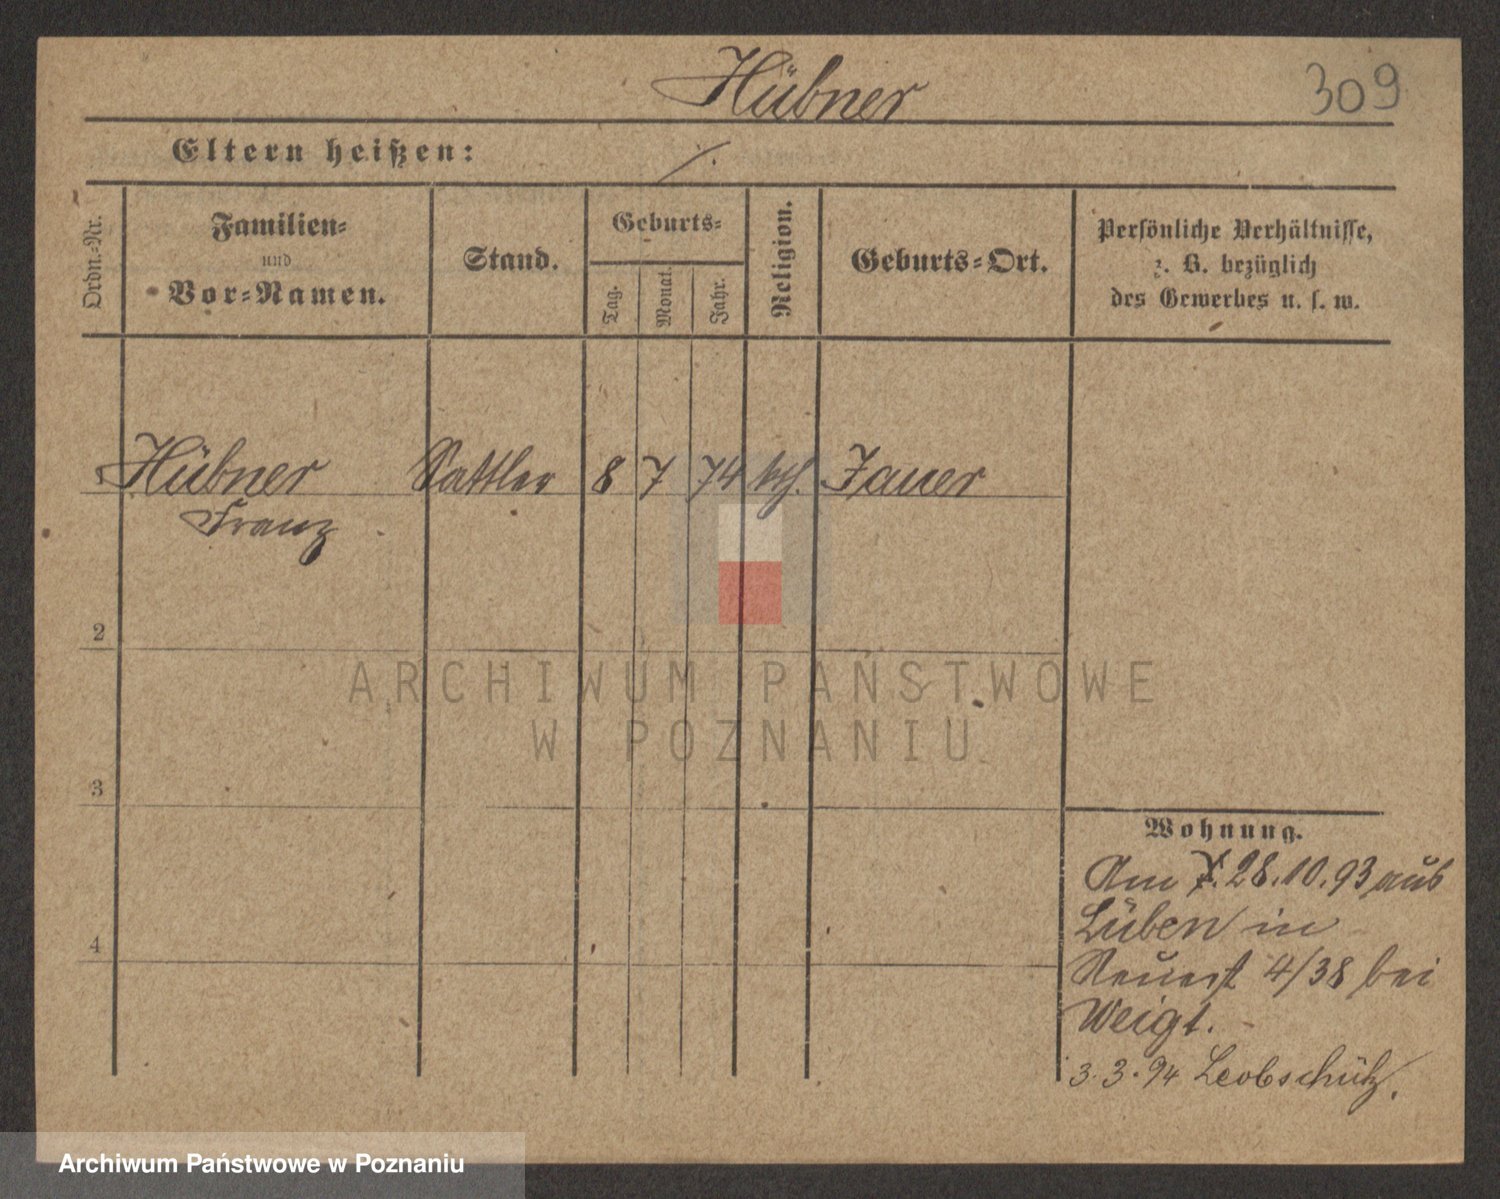 Hübner
309
Eltern heißen: ./.
Ordn.-Nr.
Familien-
und
Vor-Namen.
Stand.
Geburts-
Tag.
Monat.
Jahr.
Religion.
Geburts-Ort.
Persönliche Verhältnisse,
z. B. bezüglich
des Gewerbes u. s. w.
1 Hübner Sattler 8 7 74 kth. Jauer
Franz
2
ARCHIWUM PAŃSTWOWE
W POZNANIU
3
4
Wohnung.
Am 28.10.93 aus
Lüben in
Neuerst 4/38 bei
Weigt.
3.3.94 Leobschütz.
Archiwum Państwowe w Poznaniu